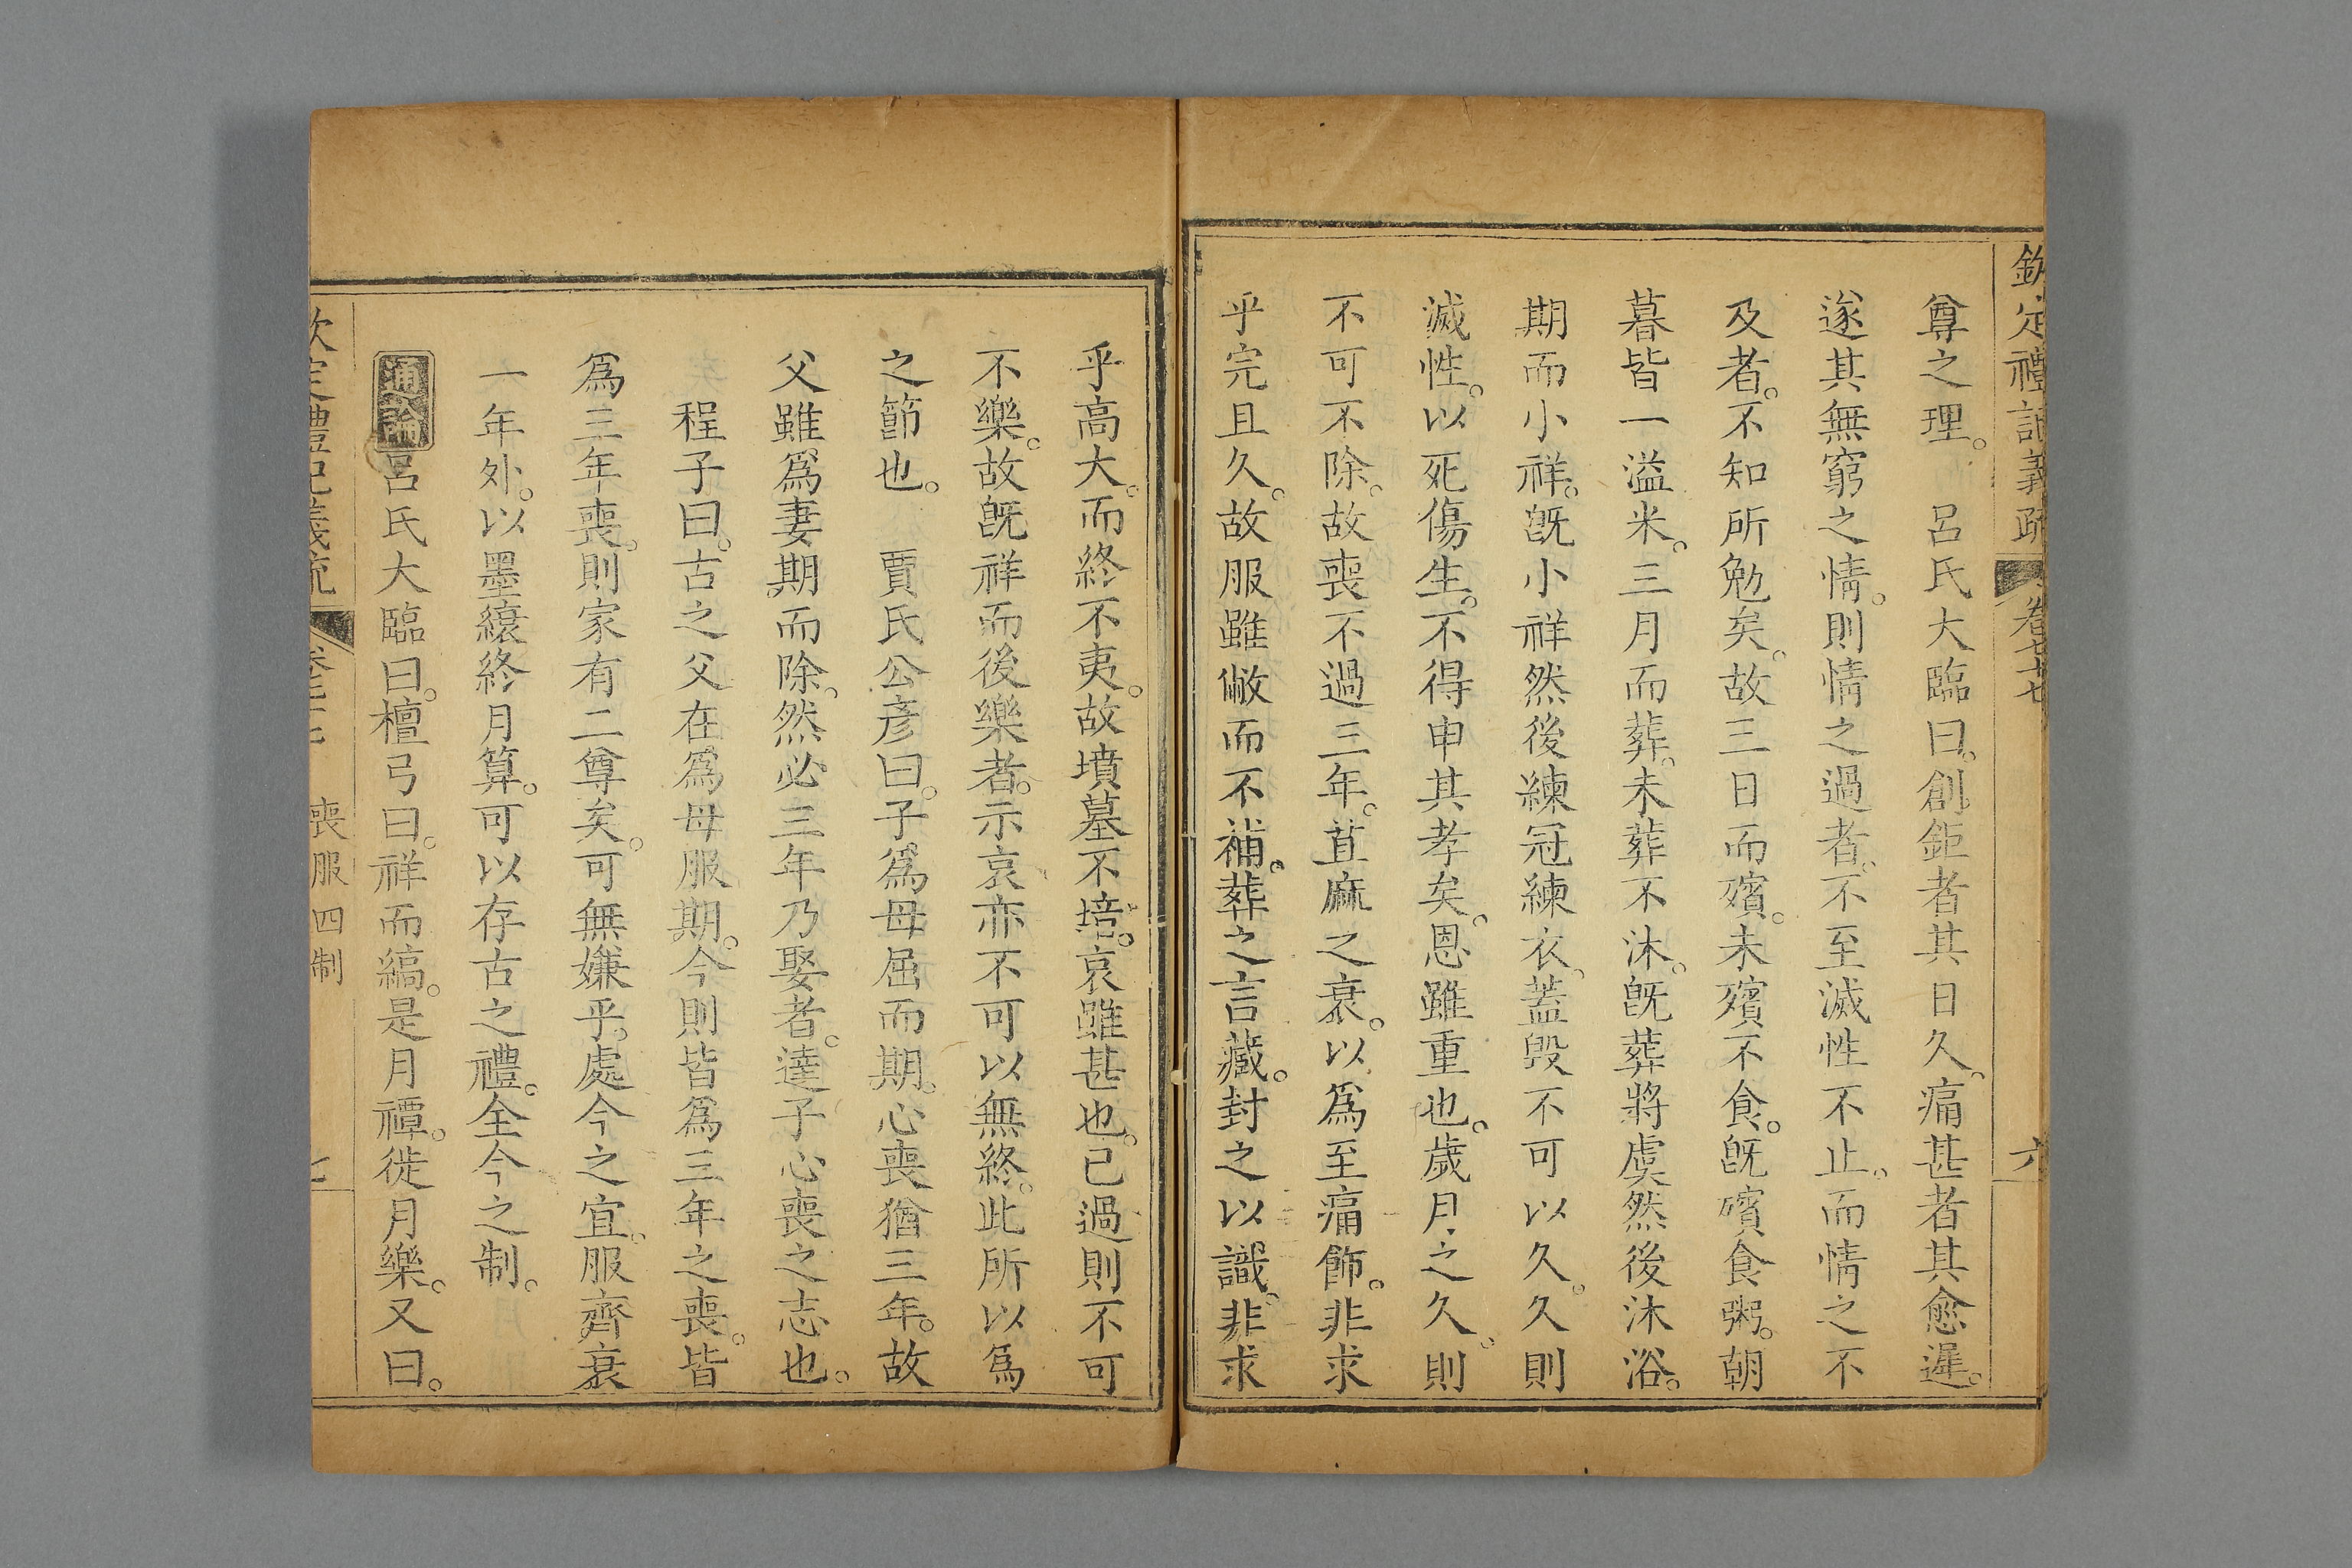 欽定禮記義疏 卷七十七 六
尊之理。 呂氏大臨曰。創鉅者其日久。痛甚者其愈遲。
遂其無窮之情。則情之過者。不至滅性不止。而情之不
及者。不知所勉矣。故三日而殯。未殯不食。旣殯食粥。朝
暮皆一溢米。三月而葬。未葬不沐。旣葬將虞然後沐浴。
期而小祥。旣小祥然後練冠練衣。蓋毁不可以久。久則
滅性。以死傷生。不得申其孝矣。恩雖重也。歲月之久。則
不可不除。故喪不過三年。苴麻之衰。以爲至痛飾。非求
乎完且久。故服雖敝而不補。葬之言藏。封之以識。非求
乎高大。而終不夷。故墳墓不培。哀雖甚也。已過則不可
不樂。故旣祥而後樂者。示哀亦不可以無終。此所以爲
之節也。 賈氏公彥曰。子爲母屈而期。心喪猶三年。故
父雖爲妻期而除。然必三年乃娶者。達子心喪之志也。
程子曰。古之父在爲母服期。今則皆爲三年之喪。皆
爲三年喪。則家有二尊矣。可無嫌乎。處今之宜。服齊衰
一年外。以墨縗終月算。可以存古之禮。全今之制。
通論 呂氏大臨曰。檀弓曰。祥而縞。是月禫。徙月樂。又曰。
欽定禮記義疏 卷七十七 喪服四制 七